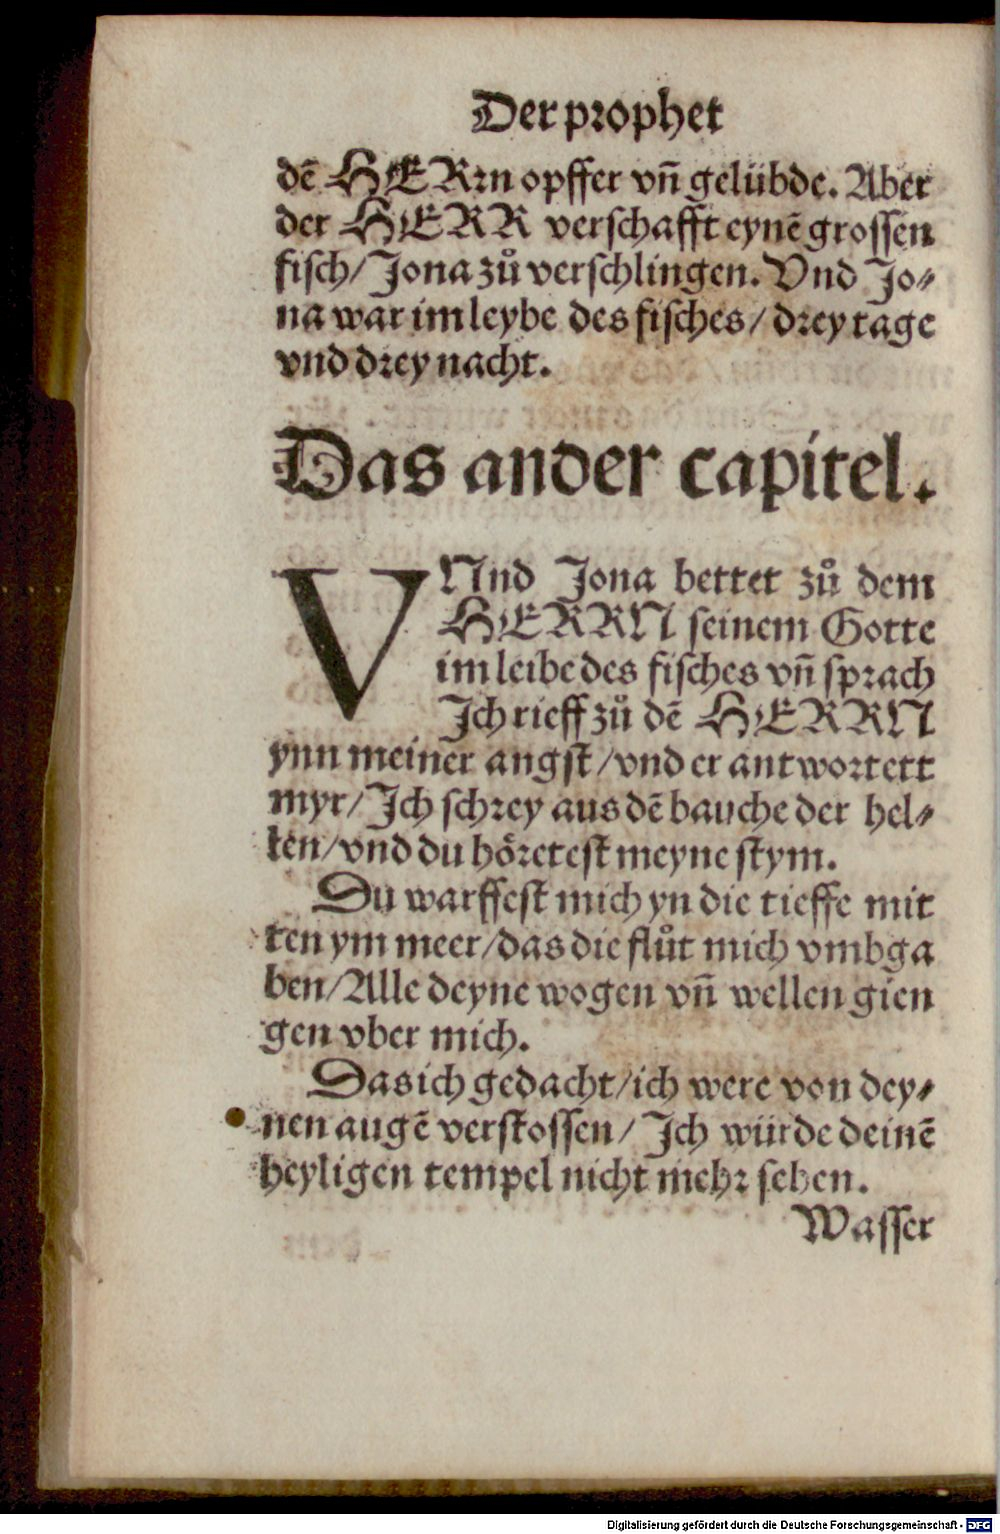 Der prophet
dē HERrn opffer vñ gelübde. Aber
der HERR verschafft eynē grossen
fisch/ Jona zů verschlingen. Vnd Jo⸗
na war im leybe des fisches/ drey tage
vnd drey nacht.
Das ander capitel.
VNnd Jona bettet zů dem
HERRN seinem Gotte
im leibe des fisches vñ sprach
Ich rieff zů dē HERRN
ynn meiner angst/ vnd er antwortett
myr/ Ich schrey aus dē bauche der hel⸗
len/ vnd du hőretest meyne stym.
Du warffest mich yn die tieffe mit
ten ym meer/ das die flůt mich vmbga
ben/ Alle deyne wogen vñ wellen gien
gen vber mich.
Das ich gedacht/ ich were von dey⸗
nen augē verstossen/ Ich würde deinē
heyligen tempel nicht mehr sehen.
Wasser
Digitalisierung gefördert durch die Deutsche Forschungsgemeinschaft - DFG